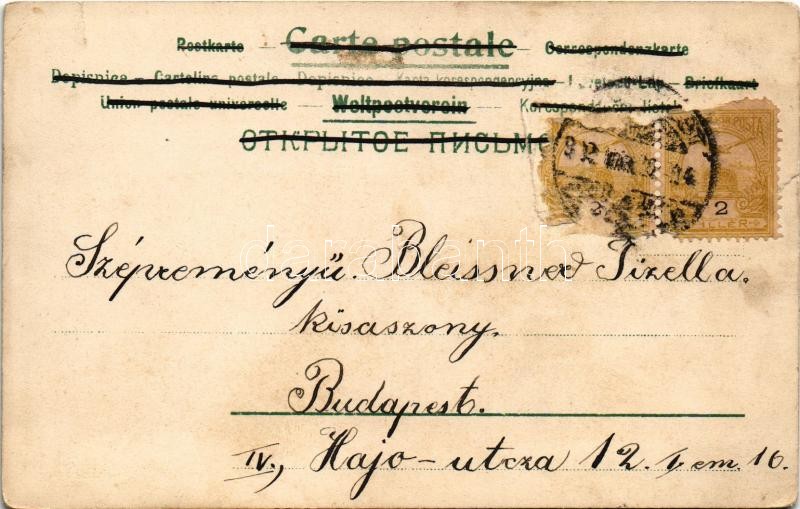 Postkarte – Carte postale – Correspondenzkarte
Dopisnice – Cartolina postale – Dopisnice – Karta korespondencyjna – Levelező-Lap – Briefkaart
Union postale universelle – Weltpostverein – Korespondenční lístek
ОТКРЫТОЕ ПИСЬМО
POSTA
2
FILLER 2
darabanth
Szépreményű Bleissner Gizella.
kisaszony.
Budapest.
IV., Hajo-utcza 12. I. em. 16.